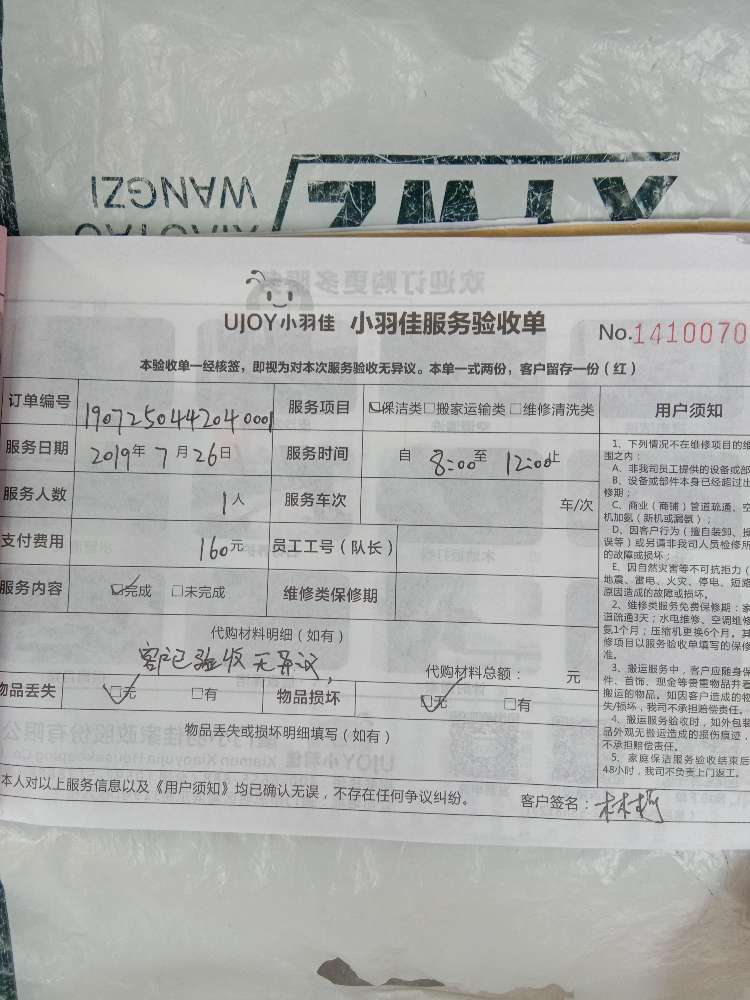 IZGNAW
UJOY小羽佳 小羽佳服务验收单 No.1410070
本验收单一经核签，即视为对本次服务验收无异议。本单一式两份，客户留存一份（红）
订单编号 1907250442040001 服务项目 ☑保洁类□搬家运输类□维修清洗类
服务日期 2019年7月26日 服务时间 自 8:00至 12:00止
服务人数 1人 服务车次 车/次
支付费用 160元 员工工号（队长）
服务内容 ☑完成 □未完成 维修类保修期
代购材料明细（如有）
客户已验收无异议，
代购材料总额： 元
物品丢失 ☑无 □有 物品损坏 ☑无 □有
物品丢失或损坏明细填写（如有）
本人对以上服务信息以及《用户须知》均已确认无误，不存在任何争议纠纷。 客户签名：
用户须知
1、下列情况不在维修项目的维
围之内：
A、非我司员工提供的设备或部
B、设备或部件本身已经超过出
修期；
C、商业（商铺）管道疏通、空
机加氨（新机或漏氨）；
D、因客户行为（擅自装卸、操
误等）或另请非我司人员检修所
的故障或损坏；
E、因自然灾害等不可抗拒力（
地震、雷电、火灾、停电、短路
原因造成的故障或损坏。
2、维修类服务免费保修期：家
道疏通3天；水电维修、空调维修
氨1个月；压缩机更换6个月。其
修项目以服务验收单填写的保修
准。
3、搬运服务中，客户应随身保
件、首饰、现金等贵重物品并看
搬运的物品。如因客户造成的物
失/损坏，我司不承担赔偿责任。
4、搬运服务验收时，如外包装
品外观无搬运造成的损伤痕迹，
不承担赔偿责任。
5、家庭保洁服务验收结束后
48小时，我司不负责上门返工。